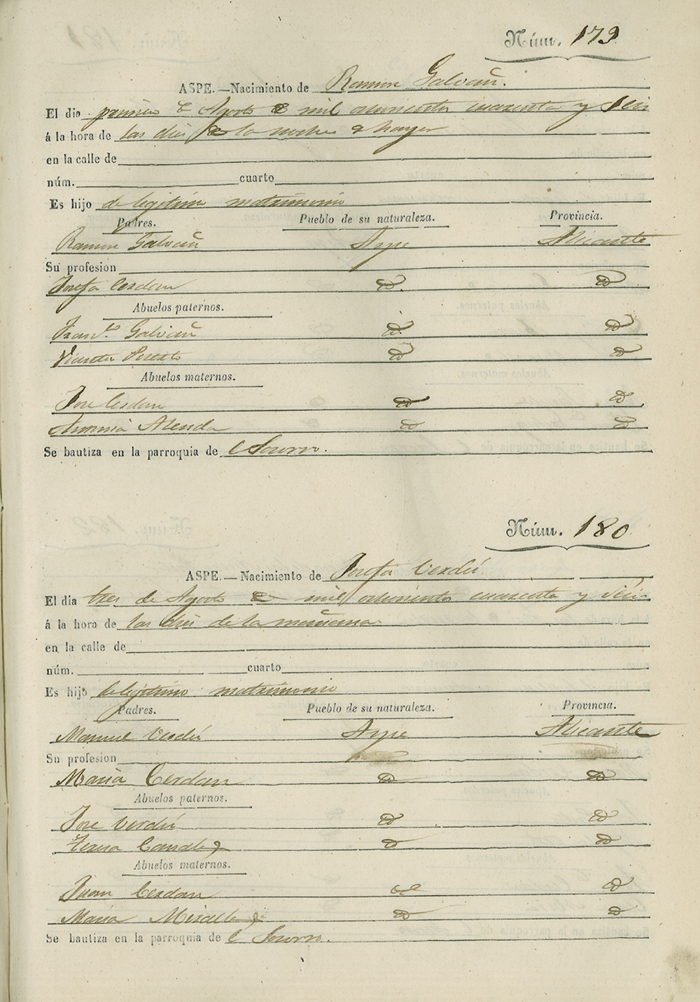 Núm. 179
ASPE.—Nacimiento de Ramon Galvañ.
El dia primero de Agosto de mil ochocientos cuarenta y seis
á la hora de las diez de la noche de hayer
en la calle de
núm. cuarto
Es hijo de legitimo matrimonio
Padres. Pueblo de su naturaleza. Provincia.
Ramon Galvañ Aspe Alicante
Su profesion
Josefa Cerdan id. id
Abuelos paternos.
Franco. Galvañ id. id
Vicenta Puerto id id
Abuelos maternos.
Jose Cerdan id id
Antonia Alenda id id
Se bautiza en la parroquia de el Socorro.
Núm. 180.
ASPE.—Nacimiento de Josefa Verdú.
El dia tres de Agosto de mil ochocientos cuarenta y seis
á la hora de las diez de la mañana
en la calle de
núm. cuarto
Es hijo de legitimo matrimonio
Padres. Pueblo de su naturaleza. Provincia.
Manuel Verdú Aspe Alicante
Su profesion
Maria Cerdan id id
Abuelos paternos.
Jose Verdú id id
Teresa id id
Abuelos maternos.
Juan Cerdan id id
Maria id id
Se bautiza en la parroquia de el Socorro.